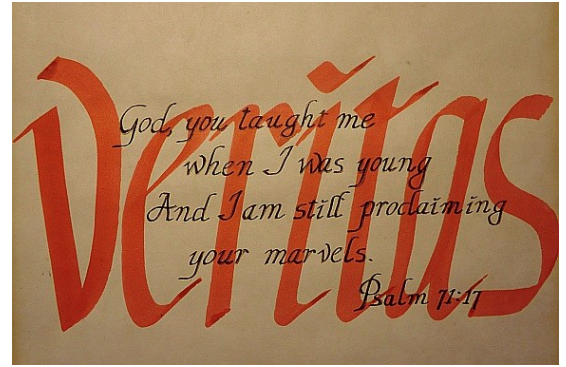 Veritas
God, you taught me
when I was young
And I am still proclaiming
your marvels.
Psalm 71:17